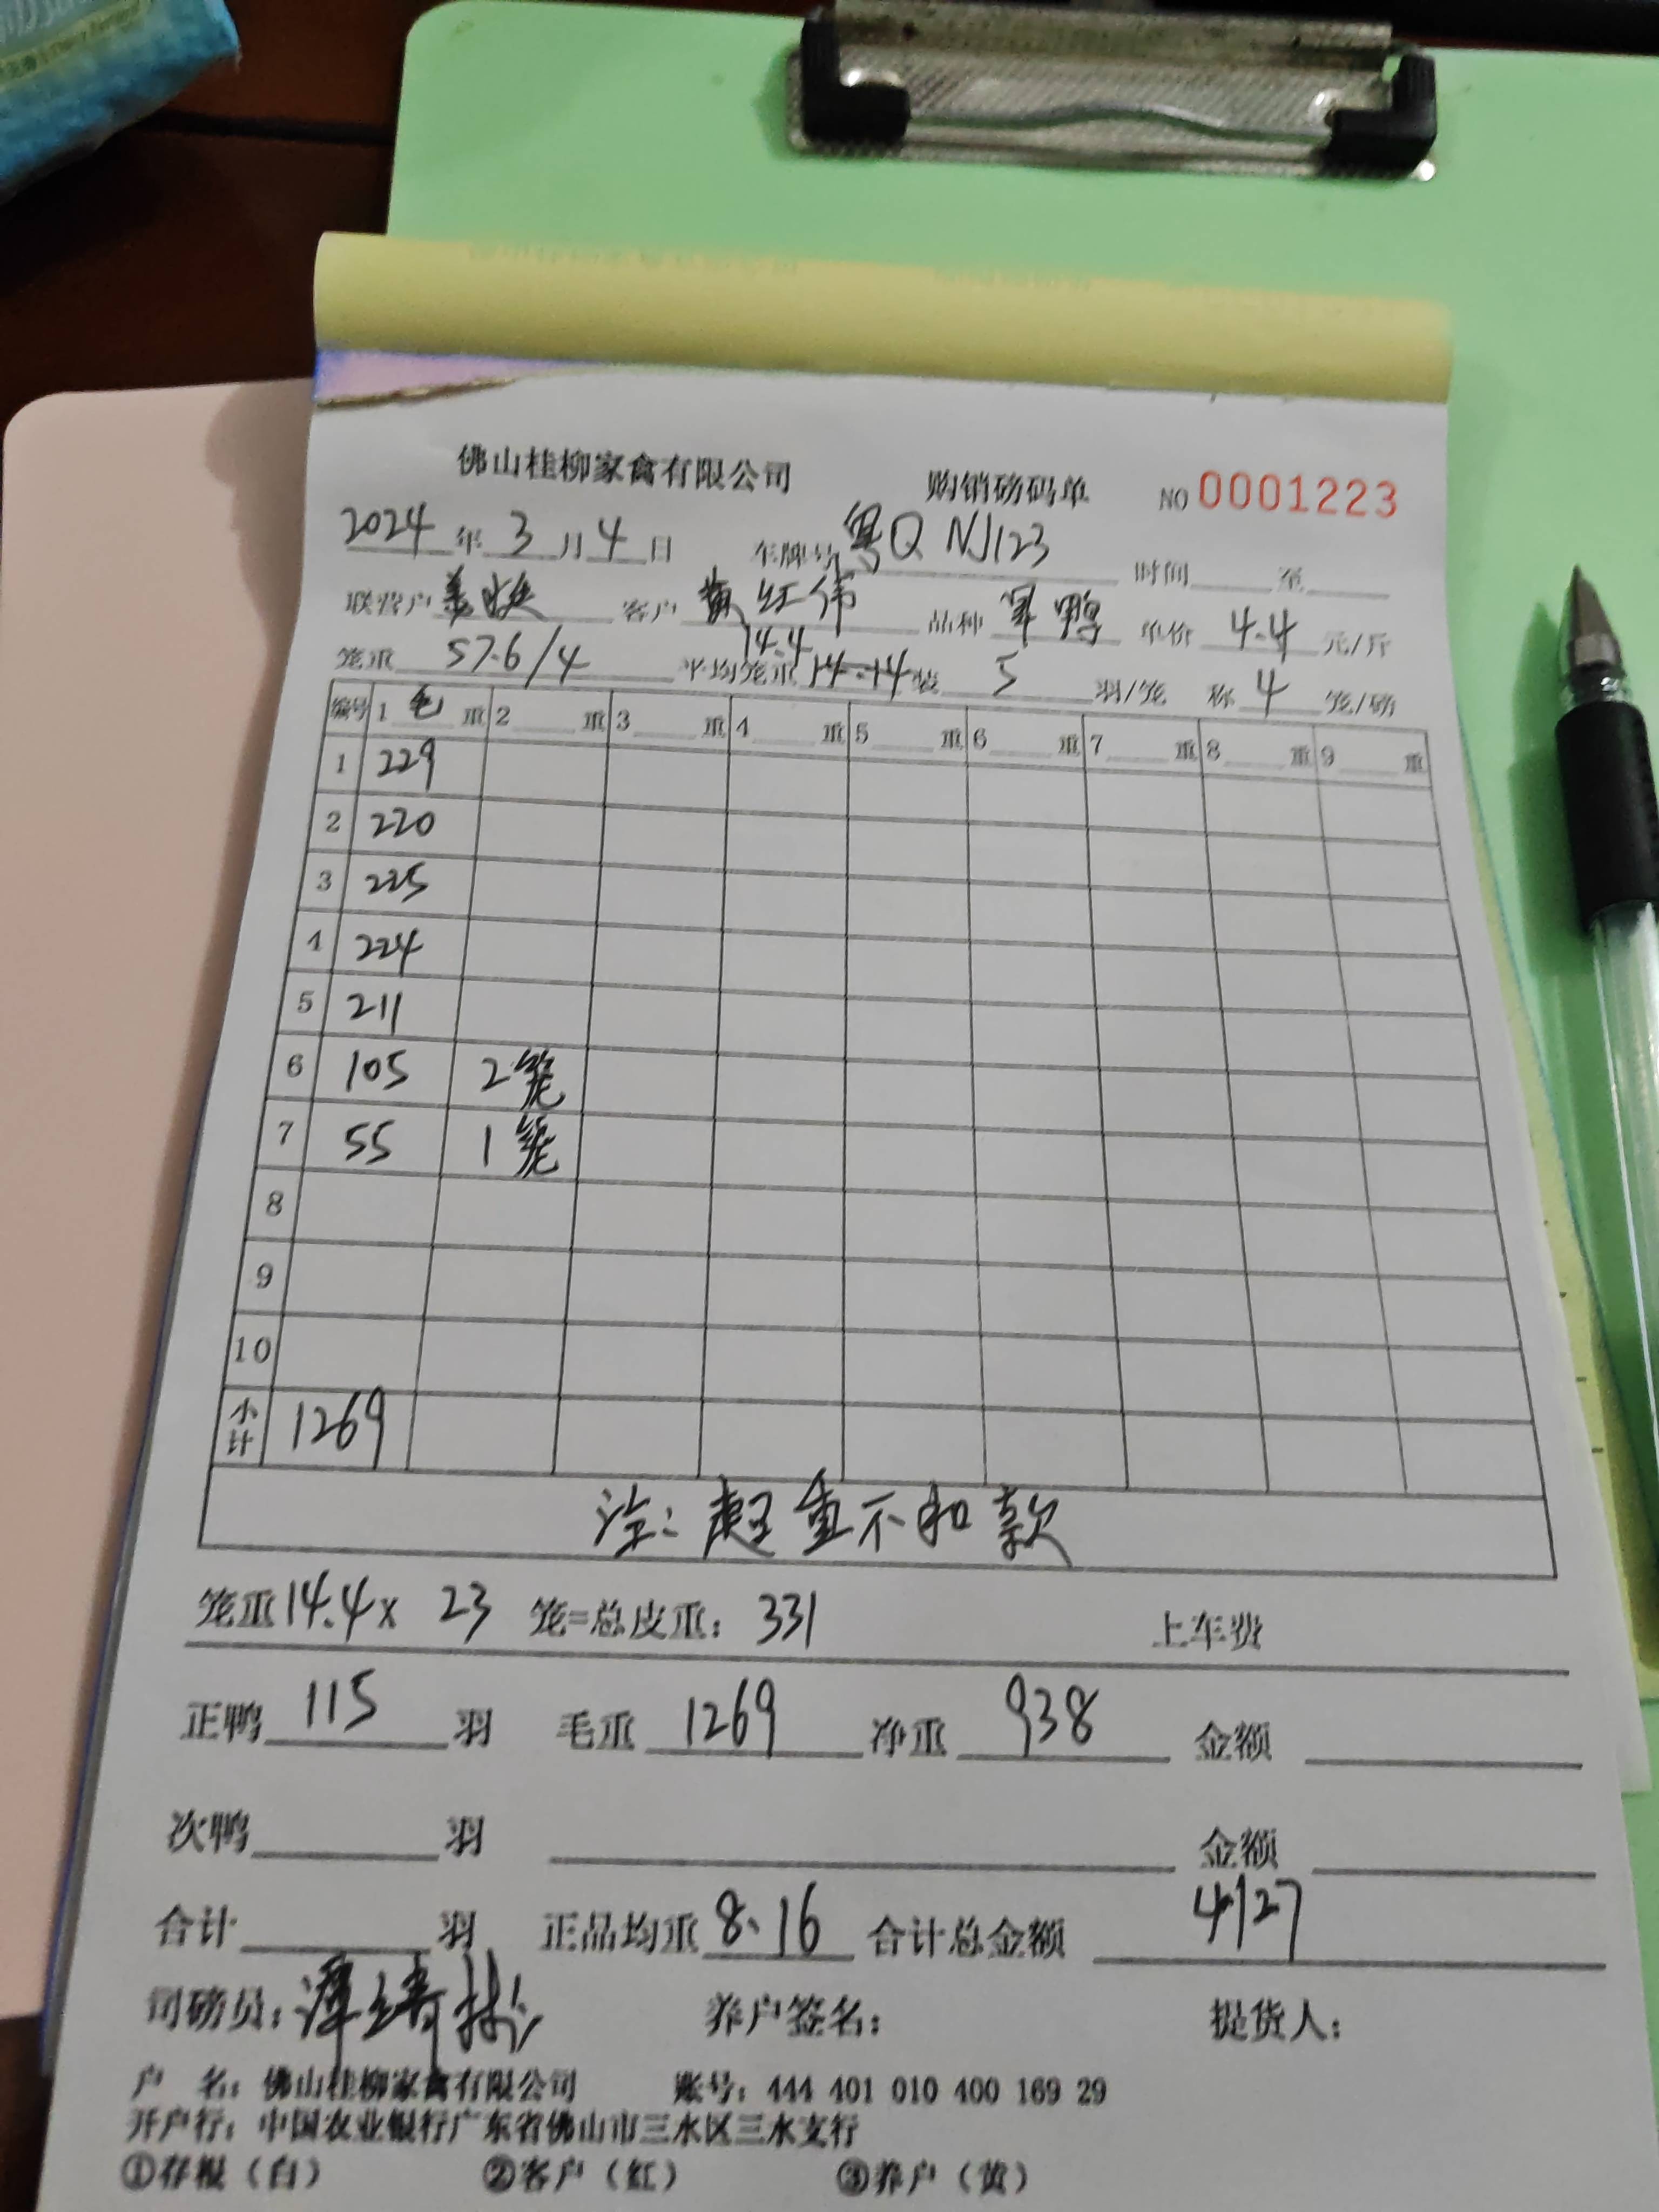 佛山桂柳家禽有限公司 购销磅码单 NO 0001223
2024 年 3 月 4 日 车牌号 粤Q NJ123 时间 至
联营户 客户 黄红伟 品种 军鸭 单价 4.4 元/斤
14.4
笼重 57.6/4 平均笼重 14.14 装 5 羽/笼 称 4 笼/磅
编号 1 毛 重 2 重 3 重 4 重 5 重 6 重 7 重 8 重 9 重
1 229
2 220
3 225
4 224
5 211
6 105 2笼
7 55 1笼
8
9
10
小计 1269
注:超重不扣款
笼重 14.4 x 23 笼=总皮重: 331 上车费
正鸭 115 羽 毛重 1269 净重 938 金额
次鸭 羽 金额
合计 羽 正品均重 8.16 合计总金额 4127
司磅员: 养户签名: 提货人:
户 名: 佛山桂柳家禽有限公司 账号: 444 401 010 400 169 29
开户行: 中国农业银行广东省佛山市三水区三水支行
①存根(白) ②客户(红) ③养户(黄)